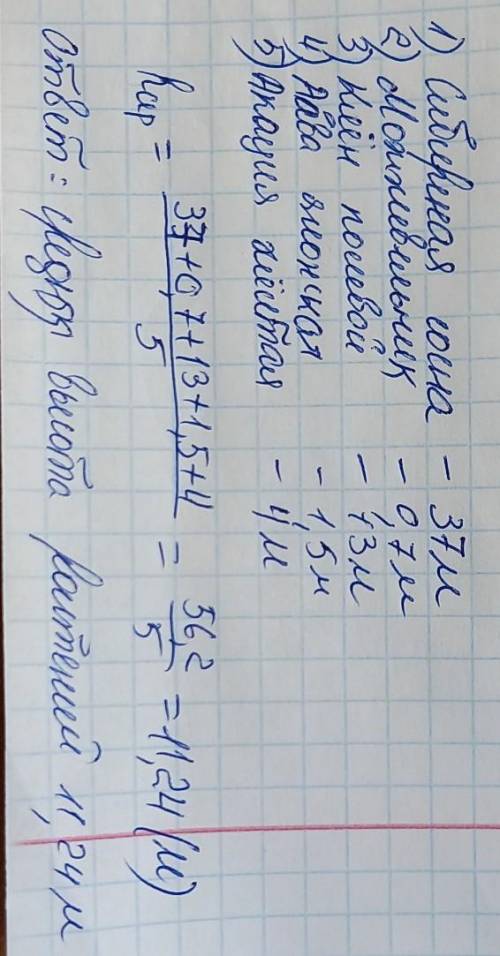 1) Сибирская сосна - 37 м
2) Можжевельник - 0,7 м
3) Клён полевой - 13 м
4) Айва японская - 1,5 м
5) Акация жёлтая - 4 м
hср = (37+0,7+13+1,5+4)/5 = 56,2/5 = 11,24 (м)
Ответ: средняя высота растений 11,24 м